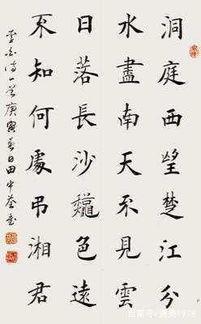 洞庭西望楚江分
水盡南天不見雲
日落長沙龝色遠
不知何處吊湘君
李白詩一首庚寅日田中